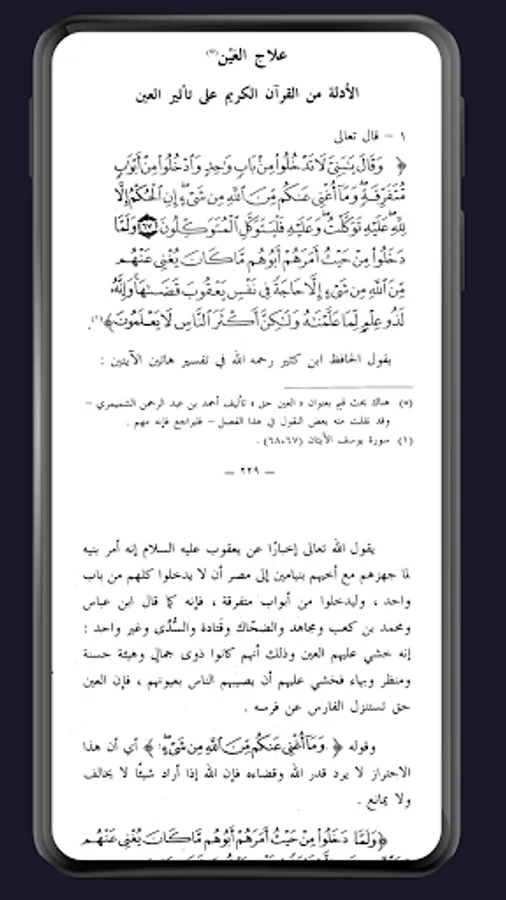 علاج العَيْن(*)
الأدلة من القرآن الكريم على تأثير العين
١ – قال تعالى
﴿ وَقَالَ يَٰبَنِىَّ لَا تَدۡخُلُواْ مِنۢ بَابٖ وَٰحِدٖ وَٱدۡخُلُواْ مِنۡ أَبۡوَٰبٖ
مُّتَفَرِّقَةٖۖ وَمَآ أُغۡنِى عَنكُم مِّنَ ٱللَّهِ مِن شَىۡءٍۖ إِنِ ٱلۡحُكۡمُ إِلَّا
لِلَّهِۖ عَلَيۡهِ تَوَكَّلۡتُۖ وَعَلَيۡهِ فَلۡيَتَوَكَّلِ ٱلۡمُتَوَكِّلُونَ ۝٦٧ وَلَمَّا
دَخَلُواْ مِنۡ حَيۡثُ أَمَرَهُمۡ أَبُوهُم مَّا كَانَ يُغۡنِى عَنۡهُم
مِّنَ ٱللَّهِ مِن شَىۡءٍ إِلَّا حَاجَةٗ فِى نَفۡسِ يَعۡقُوبَ قَضَىٰهَاۚ وَإِنَّهُۥ
لَذُو عِلۡمٖ لِّمَا عَلَّمۡنَٰهُ وَلَٰكِنَّ أَكۡثَرَ ٱلنَّاسِ لَا يَعۡلَمُونَ ﴾(١).
يقول الحافظ ابن كثير رحمه الله في تفسير هاتين الآيتين :
(*) هناك بحث قيم بعنوان « العين حق » تأليف أحمد بن عبد الرحمن الشميمري –
وقد نقلت منه بعض النقول في هذا الفصل – فليراجع فإنه مهم .
(١) سورة يوسف الآيتان (٦٧، ٦٨) .
– ٢٢٩ –
يقول الله تعالى إخبارًا عن يعقوب عليه السلام إنه أمر بنيه
لما جهزهم مع أخيهم بنيامين إلى مصر أن لا يدخلوا كلهم من باب
واحد ، وليدخلوا من أبواب متفرقة ، فإنه كما قال ابن عباس
ومحمد بن كعب ومجاهد والضحّاك وقَتادة والسُّدّى وغير واحد :
إنه خشي عليهم العين وذلك أنهم كانوا ذوى جمالٍ وهيئة حسنة
ومنظر وبهاء فخشي عليهم أن يصيبهم الناس بعيونهم ، فإن العين
حق تستنزل الفارس عن فرسه .
وقوله ﴿ وَمَآ أُغۡنِى عَنكُم مِّنَ ٱللَّهِ مِن شَىۡءٍ ﴾ أي أن هذا
الاحتراز لا يرد قدر الله وقضاءه فإن الله إذا أراد شيئًا لا يخالف
ولا يمانع .
﴿وَلَمَّا دَخَلُواْ مِنۡ حَيۡثُ أَمَرَهُمۡ أَبُوهُم مَّا كَانَ يُغۡنِى عَنۡهُم